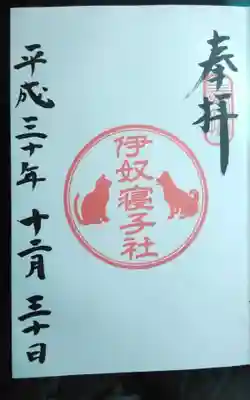 奉拝
伊奴寝子社
平成三十年 十二月 三十日